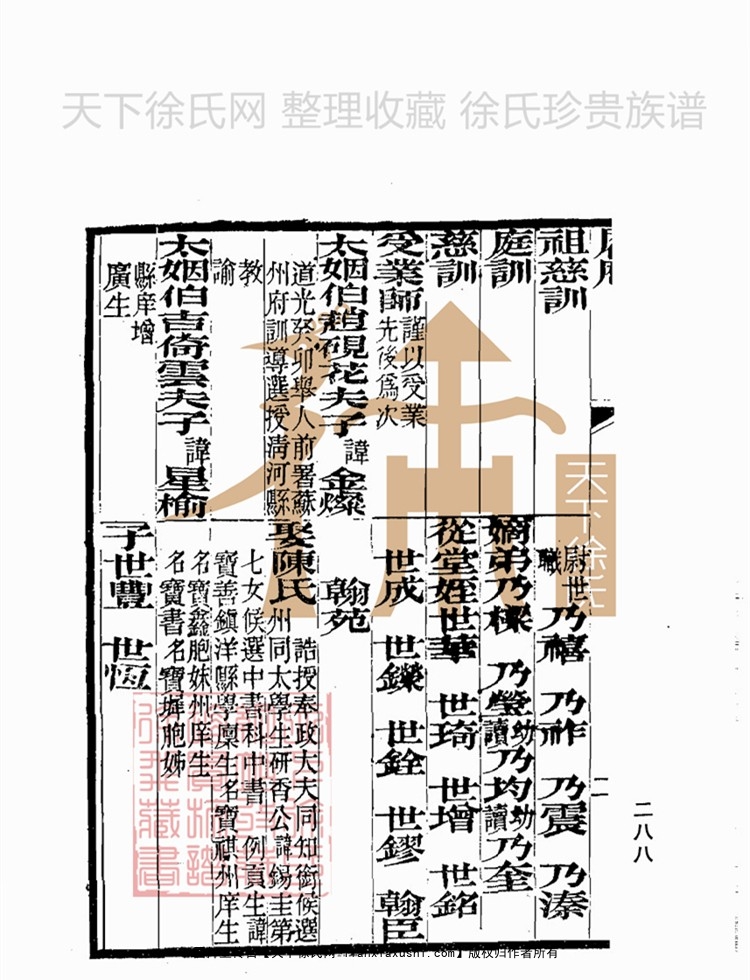 天下徐氏网 整理收藏 徐氏珍贵族谱
祖慈訓
庭訓
慈訓
受業師 謹以受業
先後為次
太姻伯趙硯花夫子 諱 金燦
道光癸卯舉人前署蘇
州府訓導選授清河縣
教
諭
太姻伯吉倚雲夫子 諱 星榆
縣庠增
廣生
尉世
職
乃禧 乃祚 乃震 乃溱
嫡弟乃樑 乃瑩幼讀 乃均幼讀 乃奎
從堂姪世華 世琦 世增 世銘
世成 世鑅 世銓 世鏐 翰臣
翰苑
娶陳氏 誥授奉政大夫同知銜候選
州同太學生研香公諱錫圭第
七女候選中書科中書 例貢生諱
寶善鎮洋縣學廩生名寶祺州庠生
名寶鑫胞妹州庠生
名寶書名寶墀胞姊
子世豐 世恆
二
二八八
天下徐氏